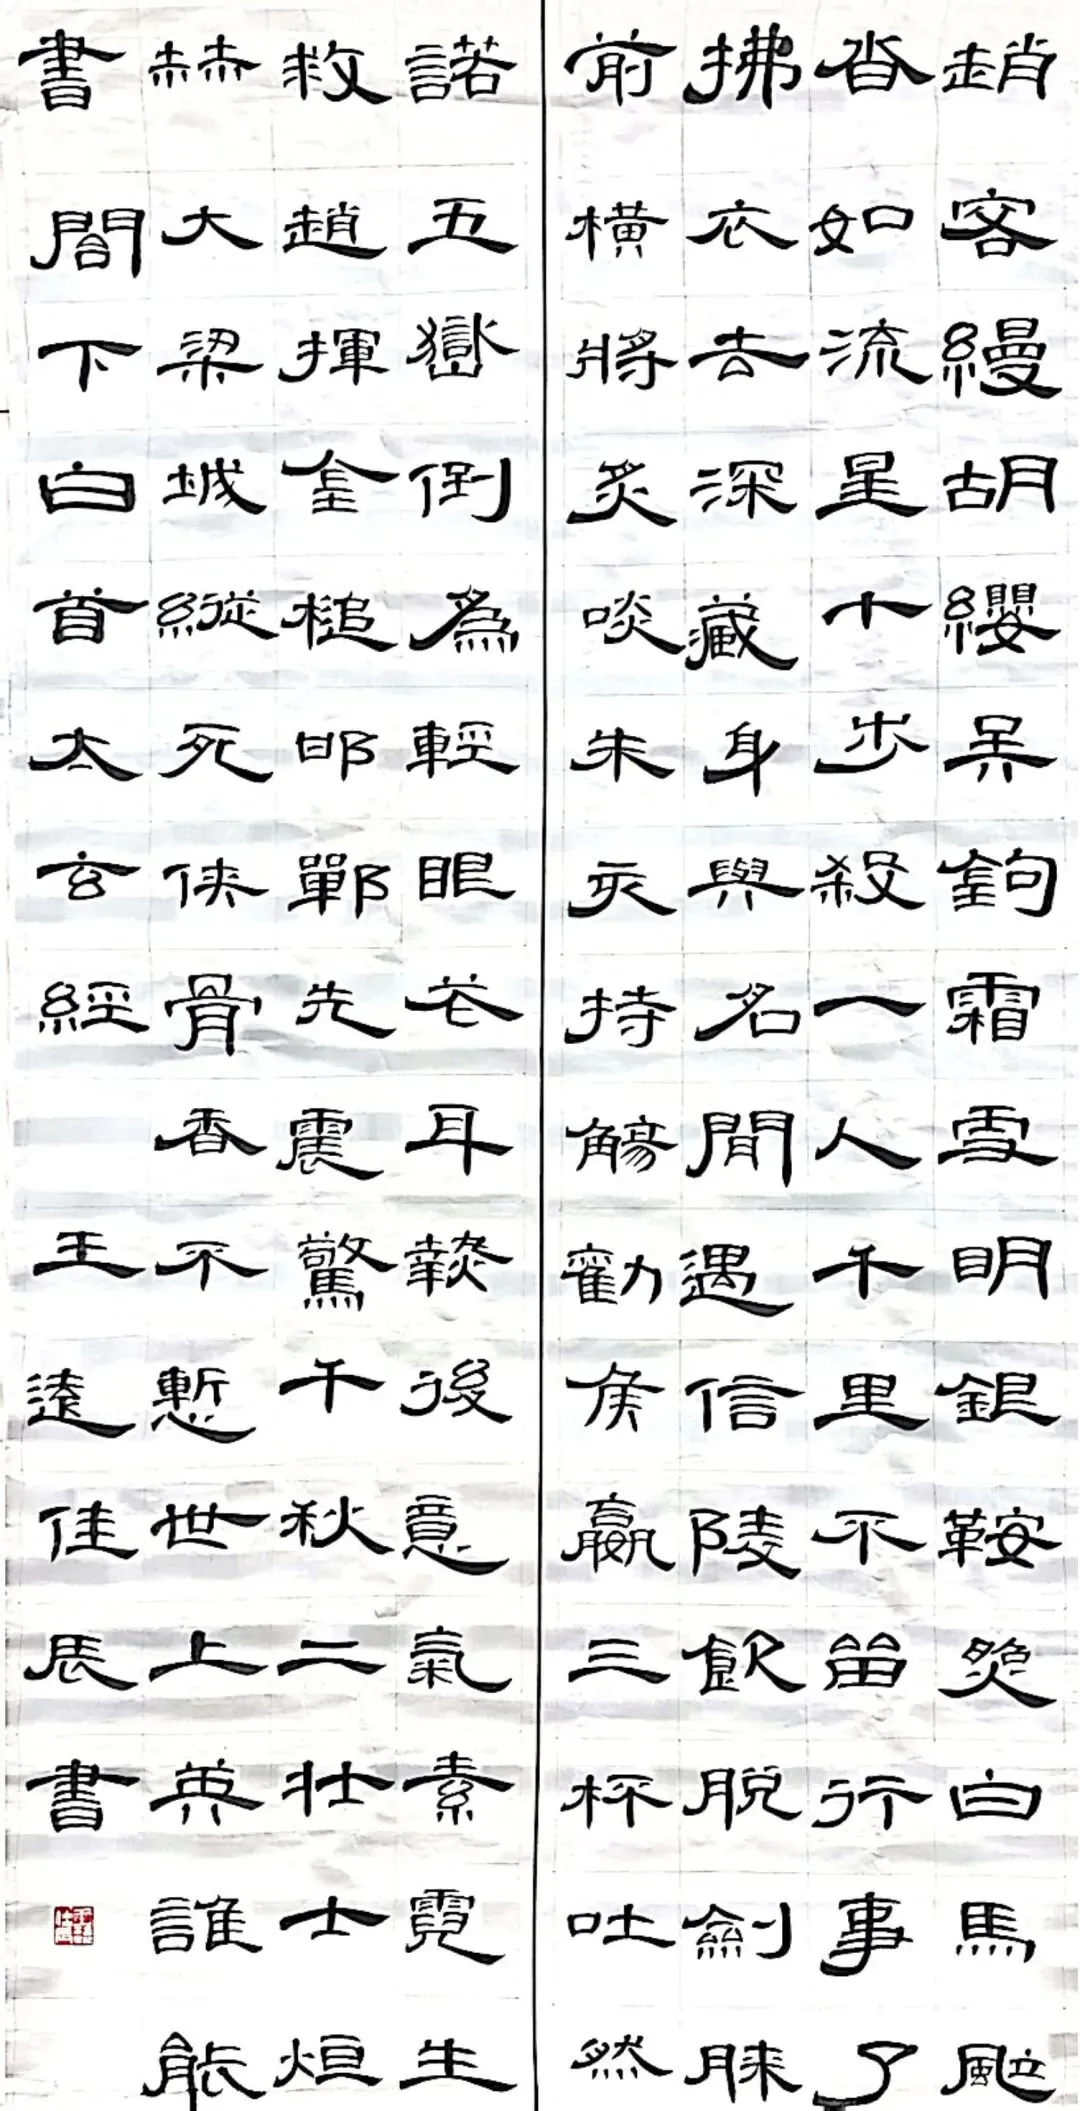 趙客縵胡纓吳鉤霜雪明銀鞍照白馬颯
沓如流星十步殺一人千里不留行事了
拂衣去深藏身與名閒過信陵飲脫劍膝
前橫將炙啖朱亥持觴勸侯嬴三杯吐然
諾五嶽倒為輕眼花耳熱後意氣素霓生
救趙揮金槌邯鄲先震驚千秋二壯士烜
赫大梁城縱死俠骨香不慙世上英誰能
書閤下白首太玄經 王遠佳辰書